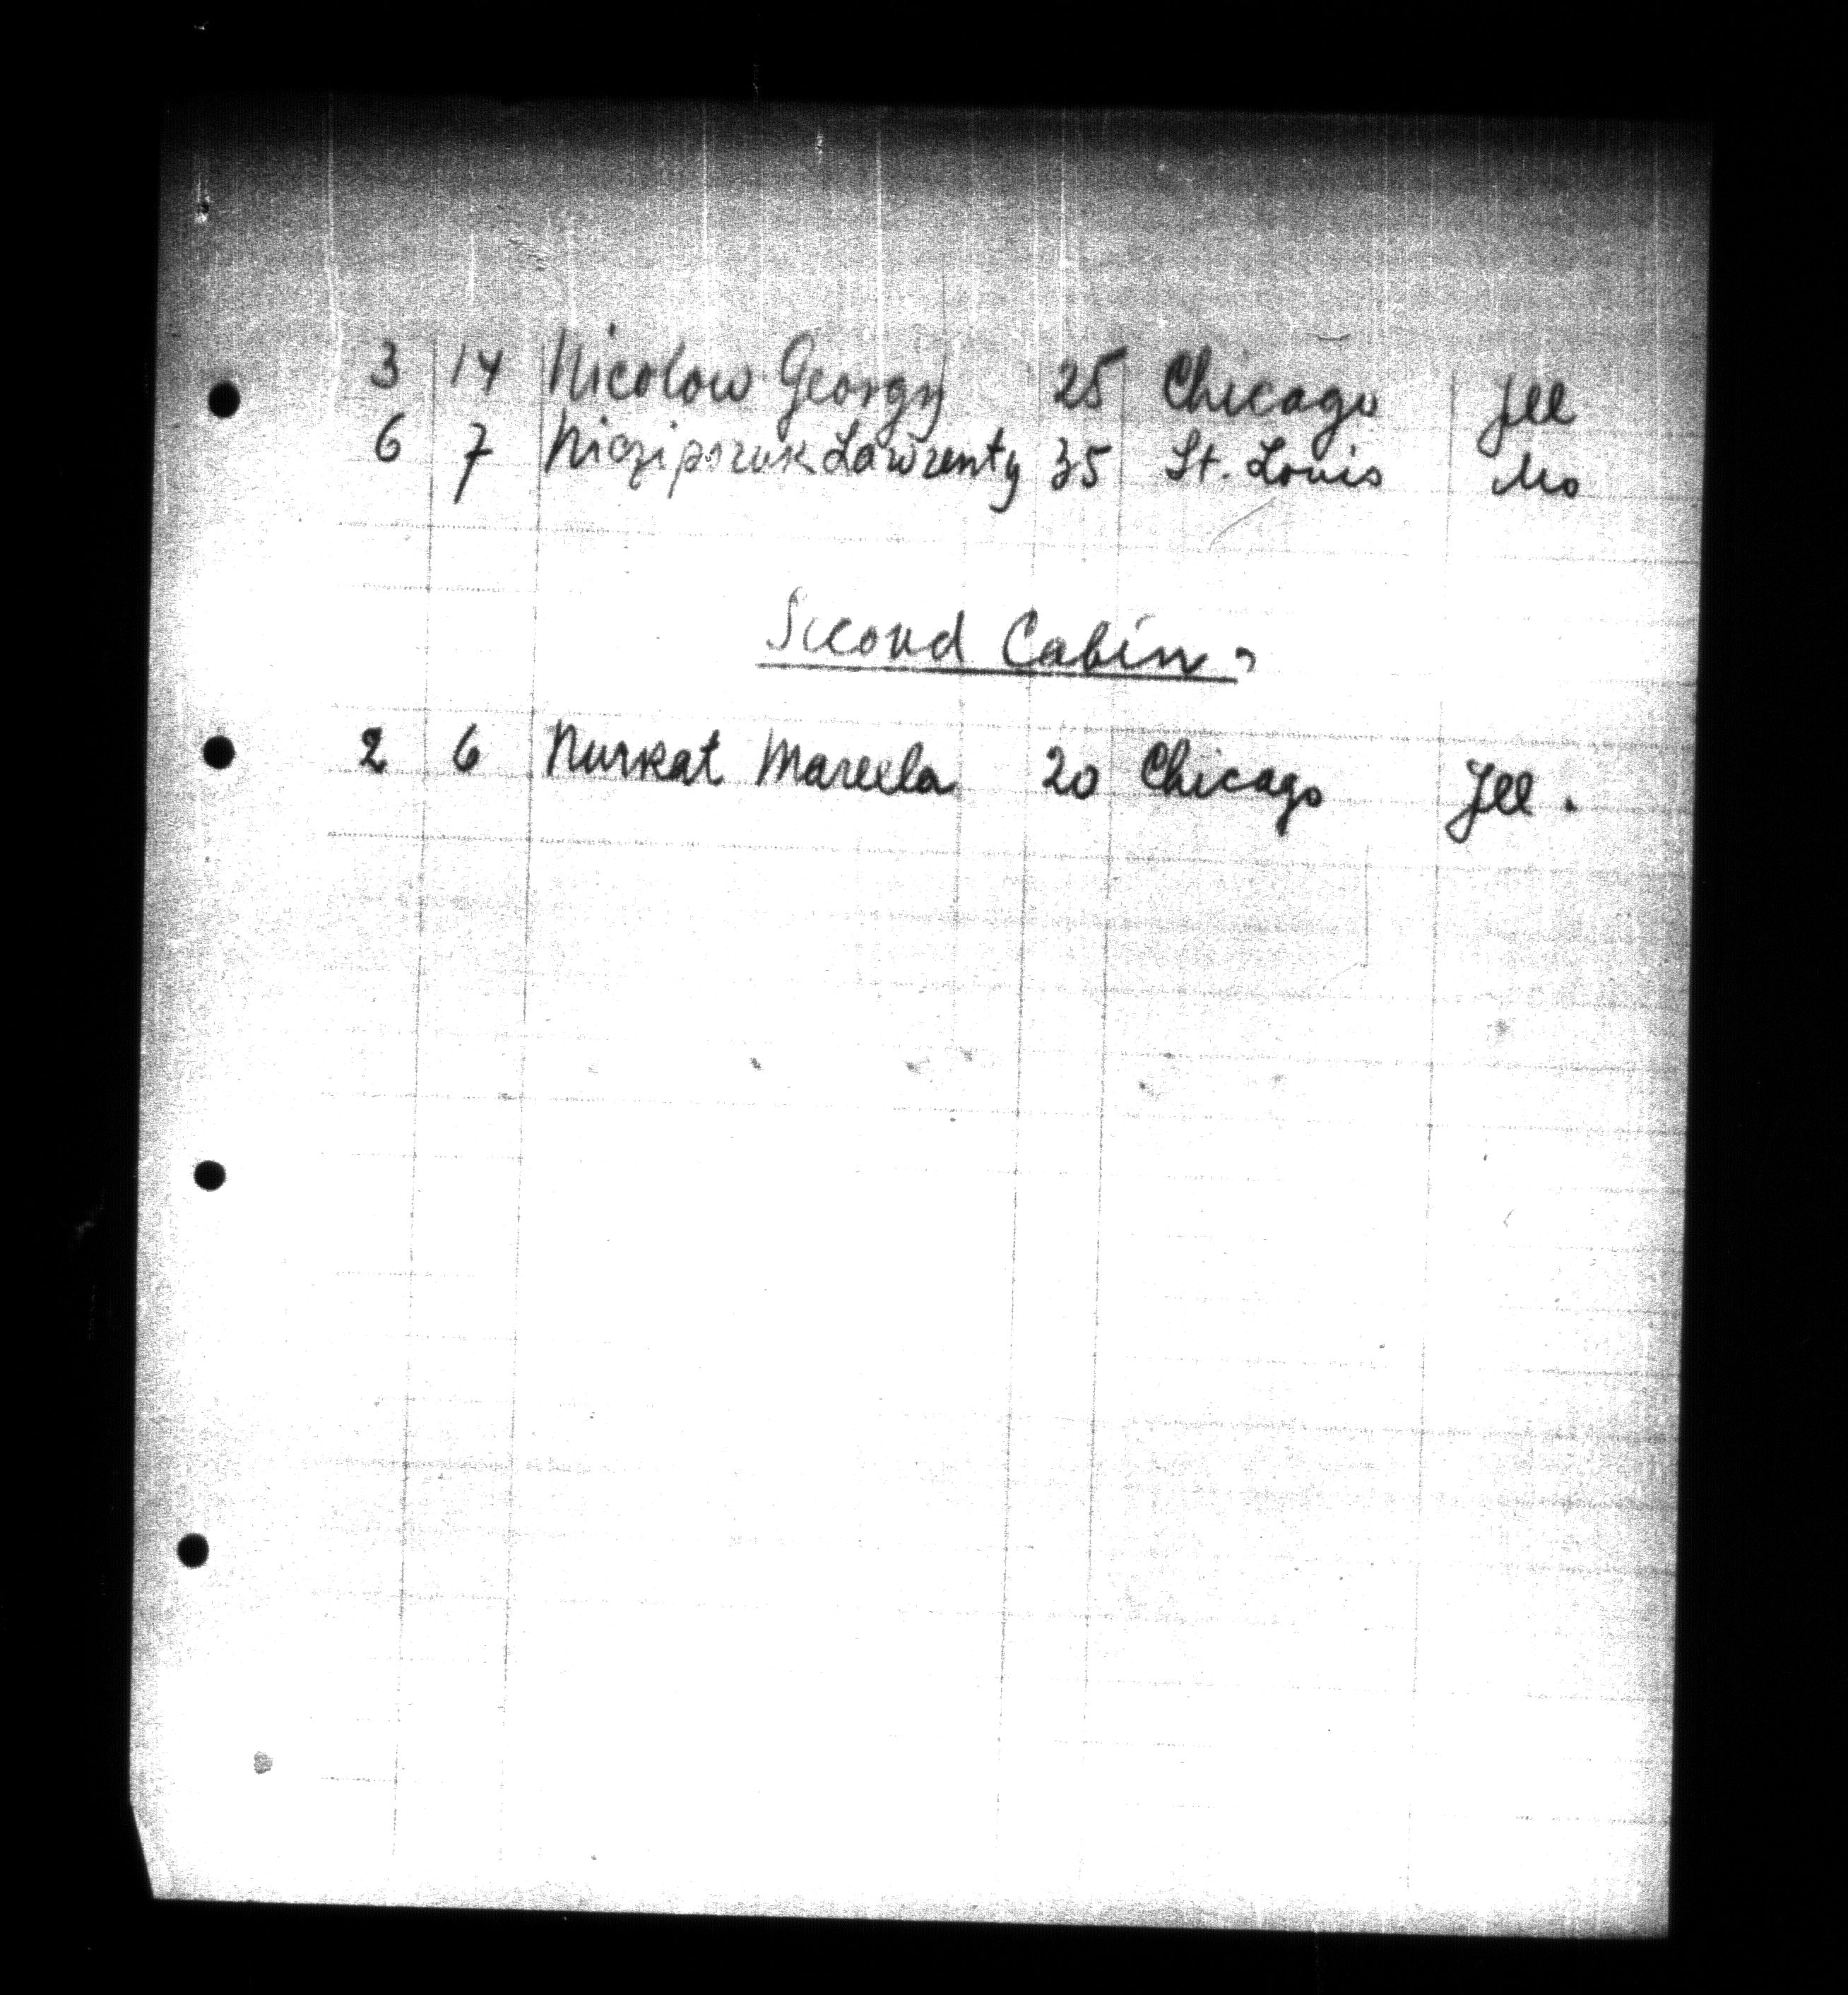 3 14 Nicolow Georgy 25 Chicago Ill
6 7 Nicziporuk Lawrenty 35 St. Louis Mo
Second Cabin
2 6 Nurkat Marcela 20 Chicago Ill.